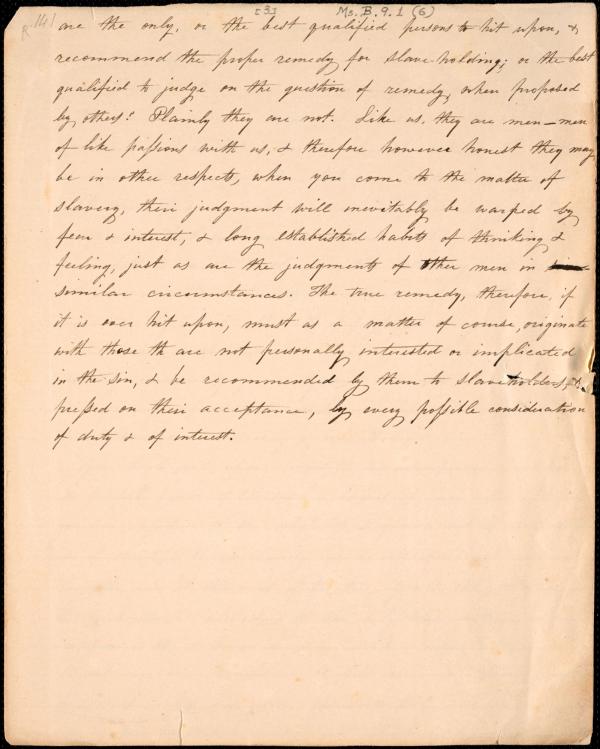 [3] Ms. B. 9. 1 (6)
are the only, or the best qualified persons to hit upon, &
recommend the proper remedy for slave-holding; or the best
qualified to judge on the question of remedy, when proposed
by others? Plainly they are not. Like us, they are men—men
of like passions with us, & therefore however honest they may
be in other respects, when you come to the matter of
slavery, their judgment will inevitably be warped by
fear & interest, & long established habits of thinking &
feeling, just as are the judgments of other men in
similar circumstances. The true remedy, therefore, if
it is ever hit upon, must as a matter of course, originate
with those th are not personally interested or implicated
in the sin, & be recommended by them to slaveholders, &
pressed on their acceptance, by every possible consideration
of duty & of interest.